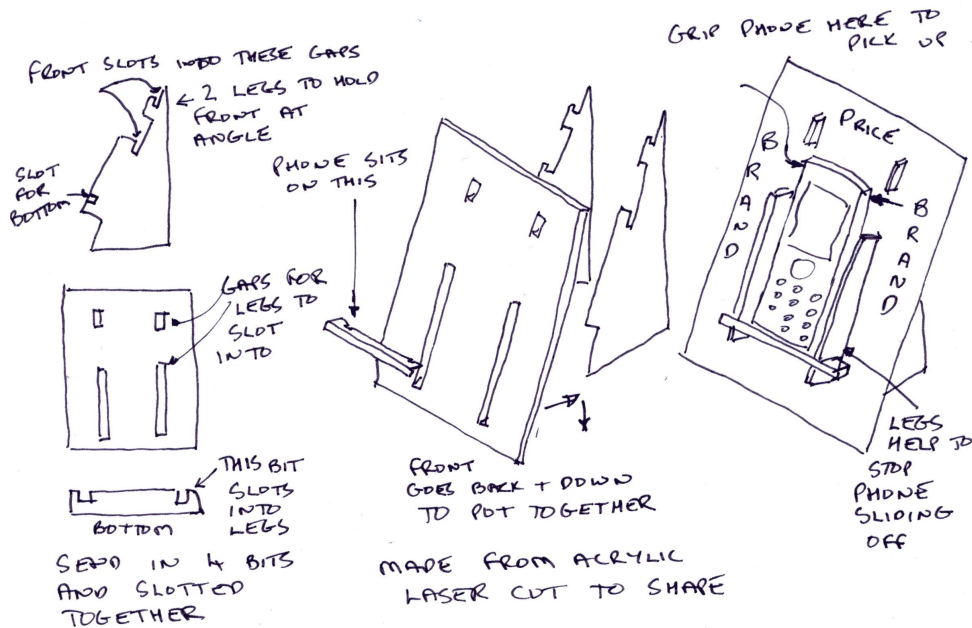 FRONT SLOTS INTO THESE GAPS
← 2 LEGS TO HOLD
FRONT AT
ANGLE
SLOT
FOR
BOTTOM
GAPS FOR
LEGS TO
SLOT
INTO
THIS BIT
SLOTS
INTO
LEGS
BOTTOM
SEND IN 4 BITS
AND SLOTTED
TOGETHER
PHONE SITS
ON THIS
FRONT
GOES BACK + DOWN
TO PUT TOGETHER
MADE FROM ACRYLIC
LASER CUT TO SHAPE
GRIP PHONE HERE TO
PICK UP
PRICE
BRAND
BRAND
LEGS
HELP TO
STOP
PHONE
SLIDING
OFF